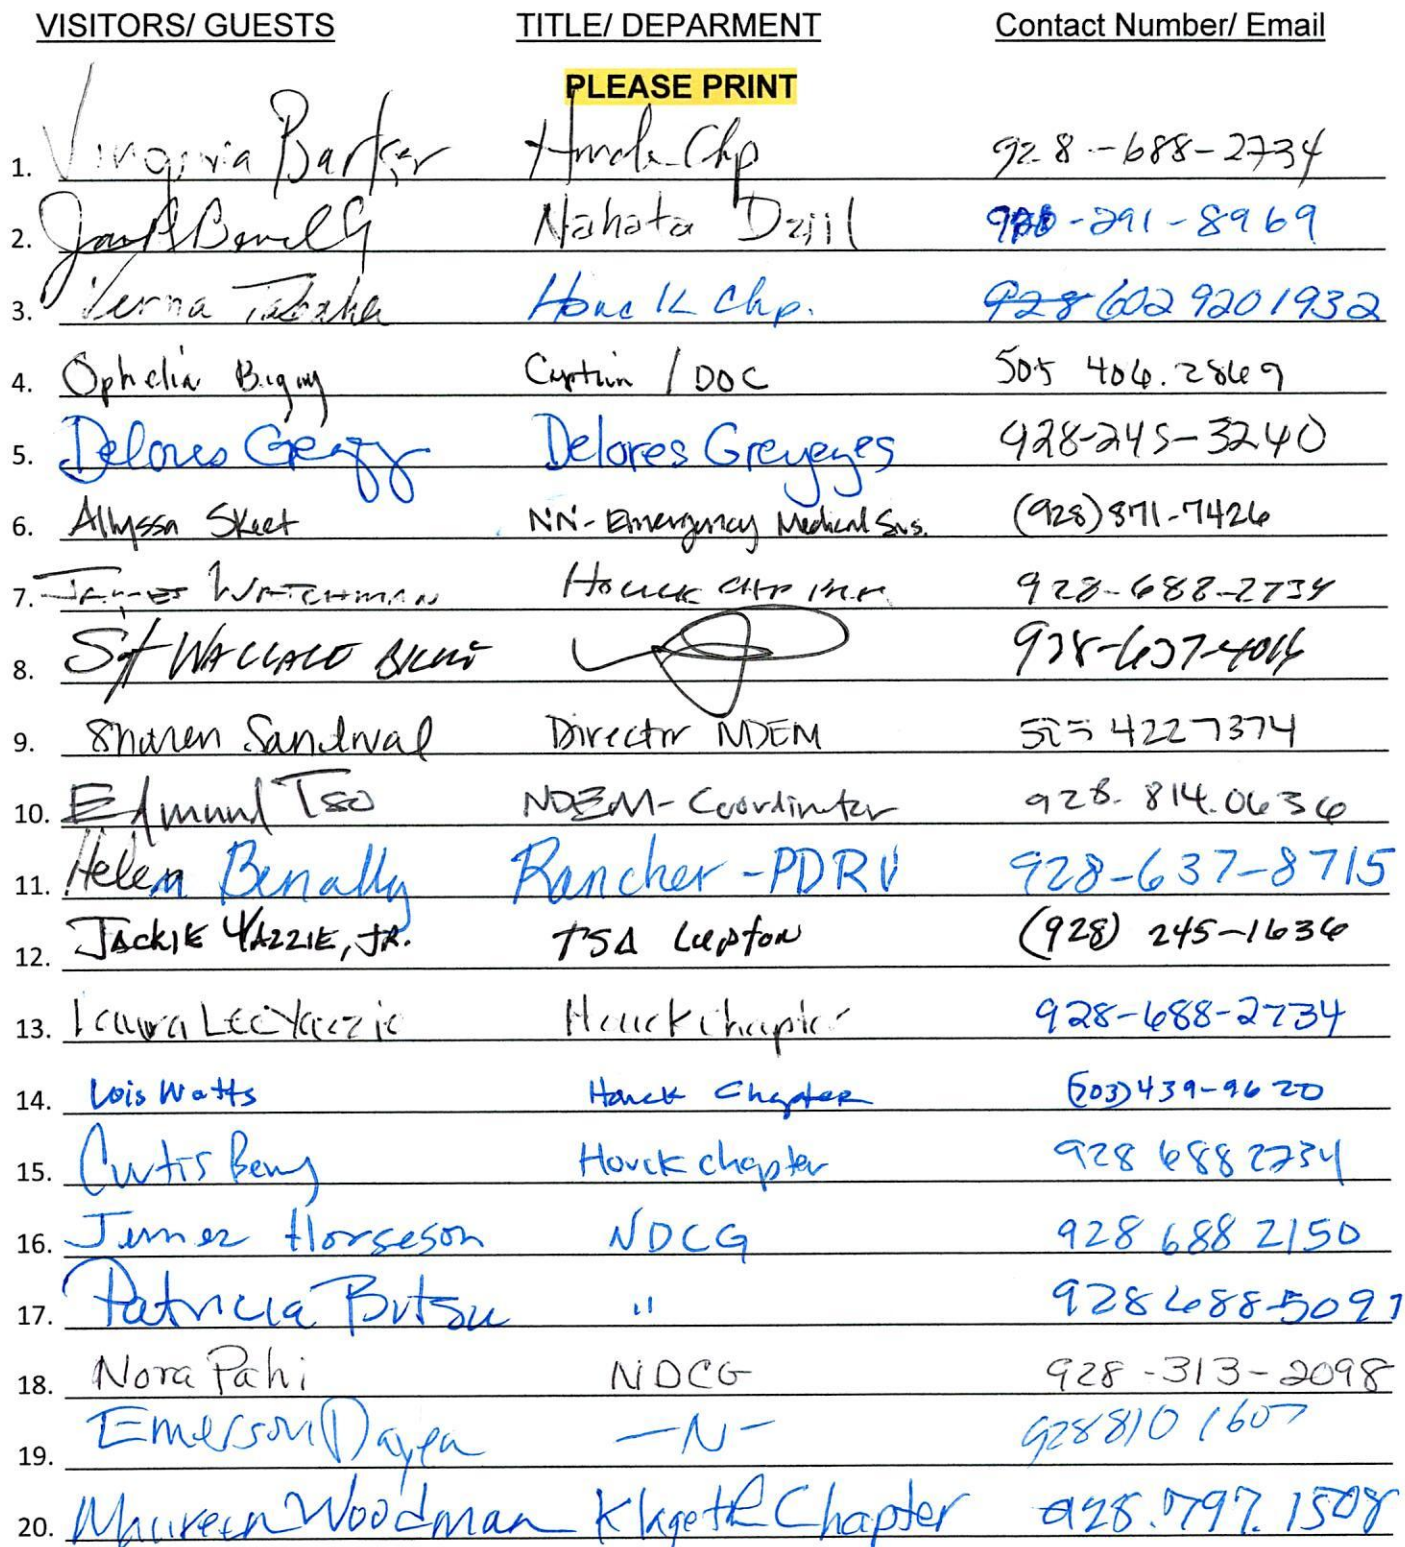 VISITORS/ GUESTS TITLE/ DEPARMENT Contact Number/ Email
PLEASE PRINT
1. Virginia Barker Chp 928-688-2734
2. Nahata Dziil -291-8969
3. Verna Houck Chp. 928 602 920 1932
4. Ophelia / DOC 505 406.2869
5. Delores Delores Greyeyes 928-245-3240
6. Allyssa Skeet NN-Emergency Medical Svs. (928) 871-7426
7. James WATCHMAN Houck 928-688-2734
8. Sgt WALLACE
9. Sharen Sandoval Director NDEM 505 4227374
10. Edmund Tso NDEM-Coordinator 928. 814.0636
11. Helen Benally Rancher-PDRV 928-637-8715
12. JACKIE YAZZIE, JR. TSA Lupton (928) 245-1636
13. Laura Lee Yazzie Houck Chapter 928-688-2734
14. Lois Watts Houck Chapter (503) 439-9620
15. Curtis Houck chapter 928 688 2734
16. Horseson NDCG 928 688 2150
17. Patricia " 928 688-5097
18. Nora Pahi NDCG 928-313-2098
19. Emerson -N- 928810 1607
20. Maureen Woodman Klagetoh Chapter 928.797.1508